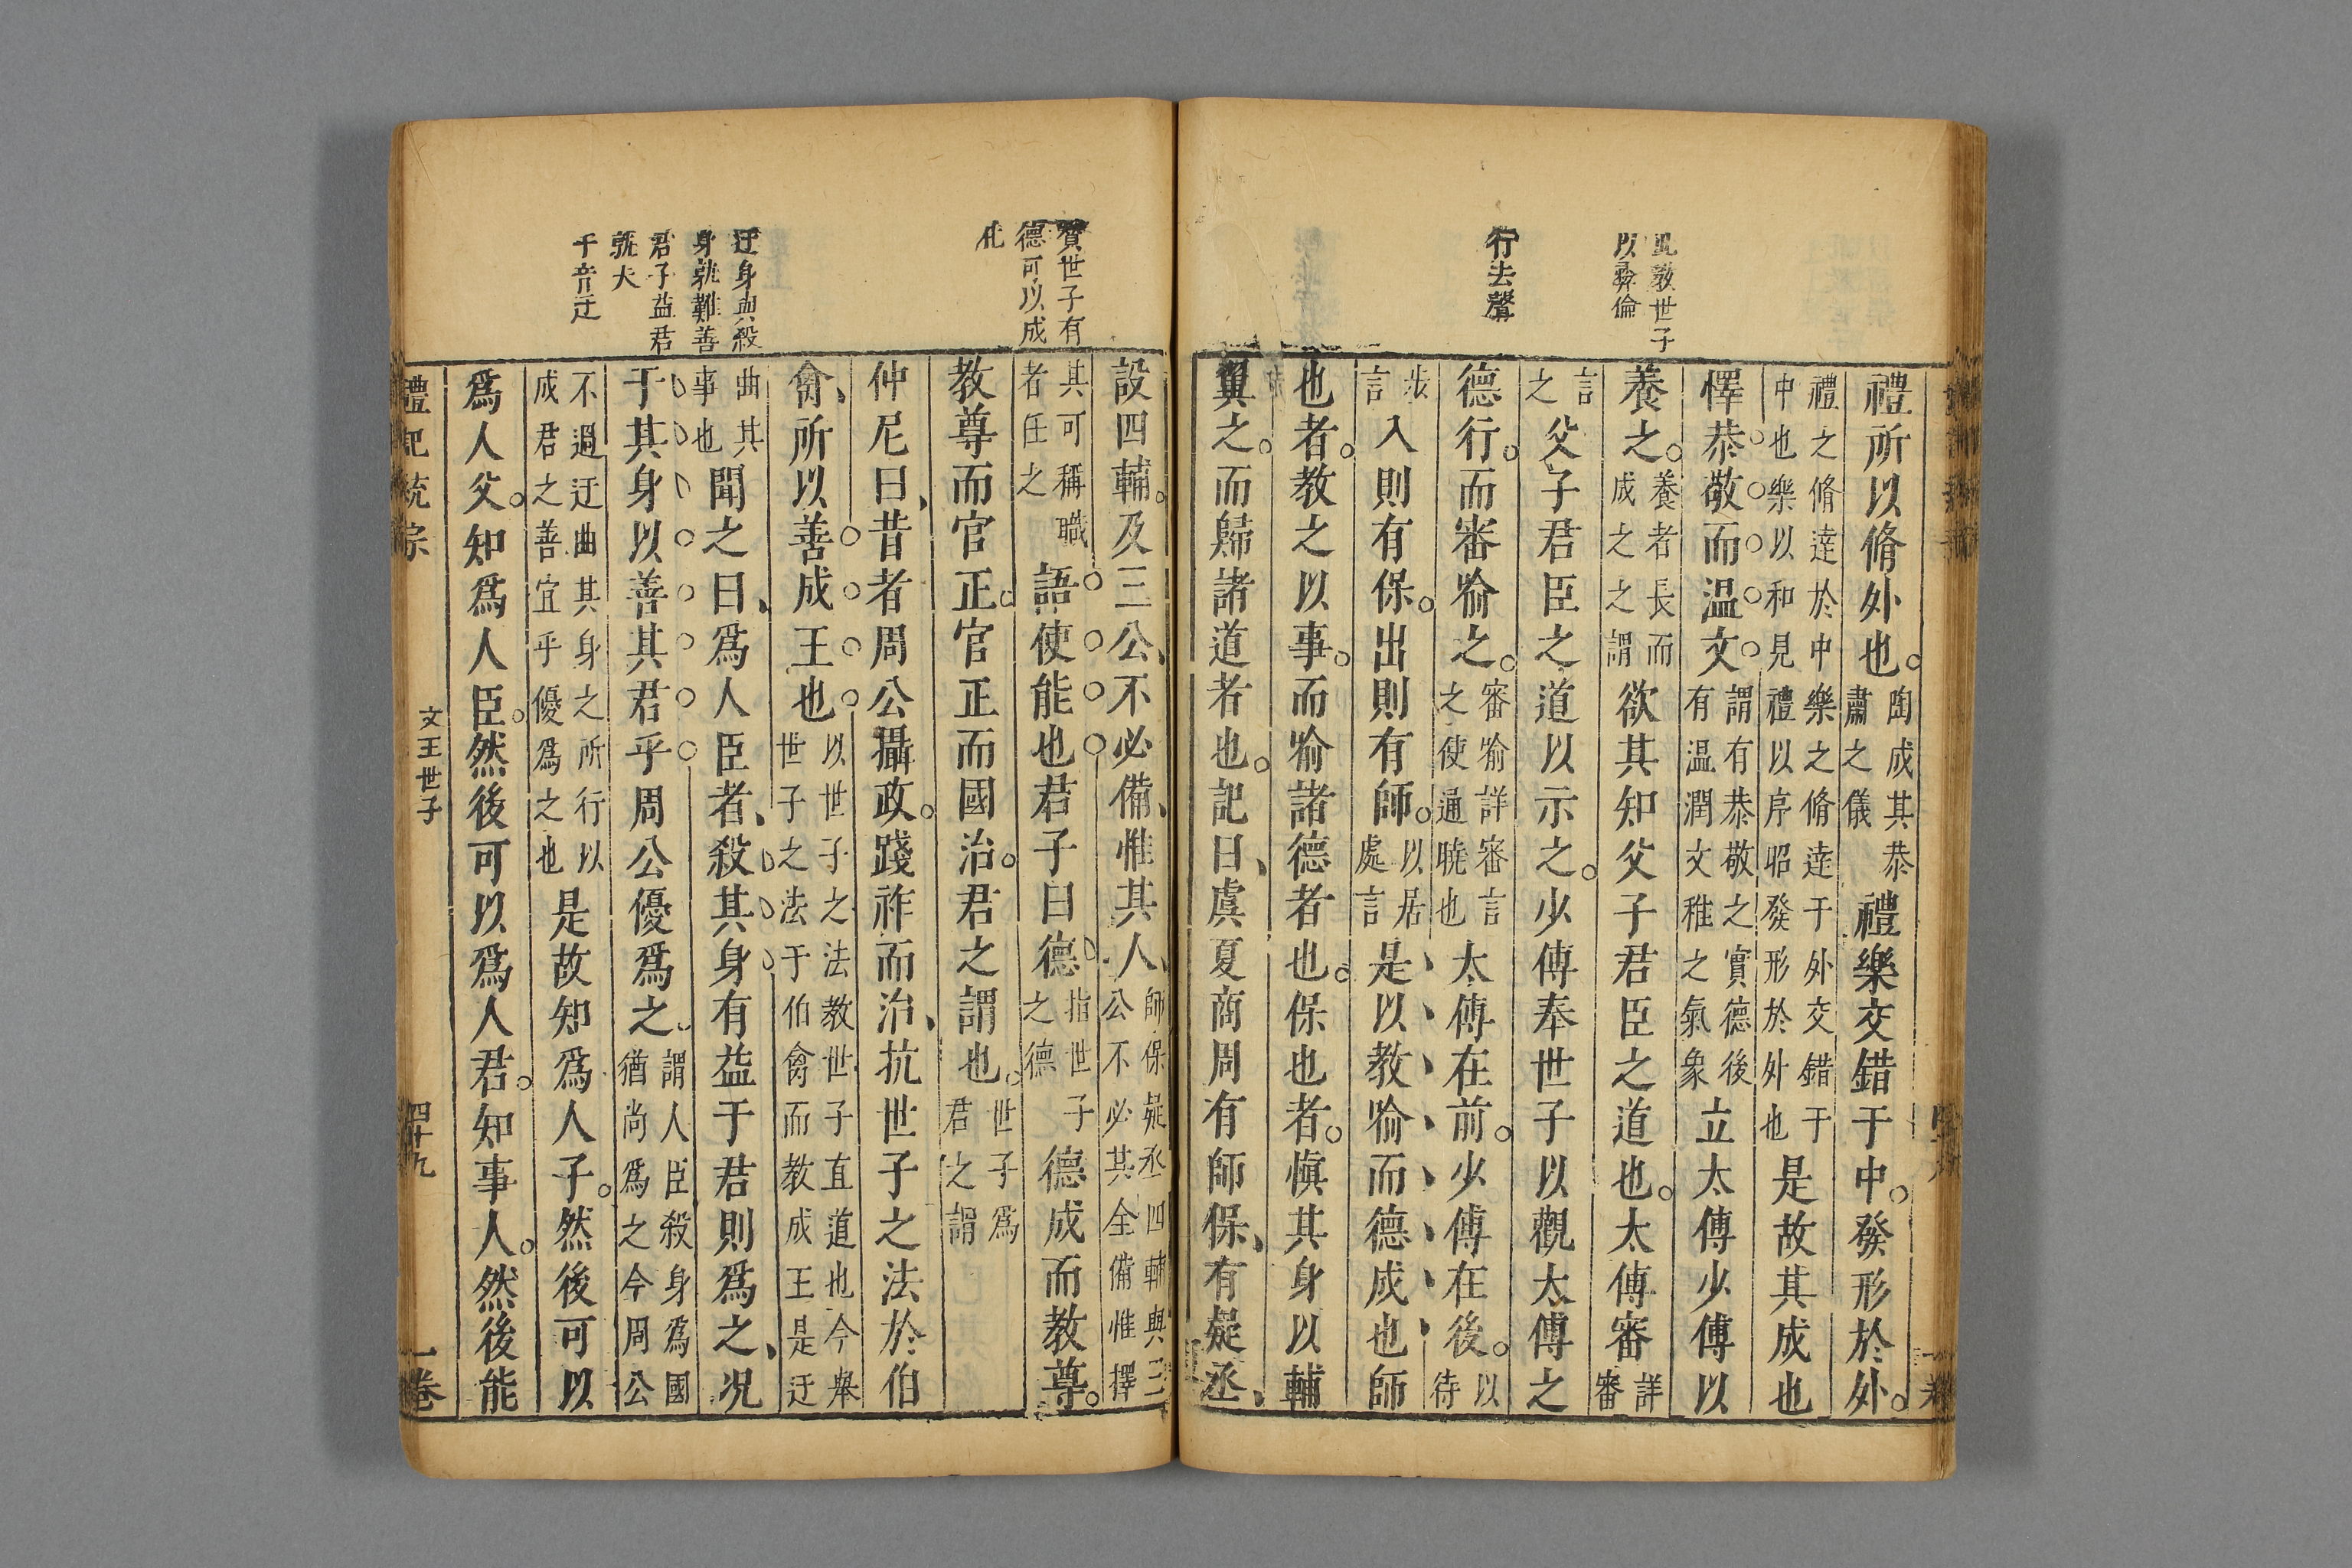 禮所以脩外也。陶成其恭肅之儀禮樂交錯于中。發形於外。
禮之脩達於中樂之脩達于外交錯于中也樂以和見禮以序昭發形於外也是故其成也
懌恭敬而温文。謂有恭敬之實德後有温潤文雅之氣象立太傅少傅以
養之。養者長而成之之謂欲其知父子君臣之道也。太傅審詳審
言之父子君臣之道以示之。少傅奉世子以觀太傅之
德行。而審喻之。審喻詳審言之使通曉也太傅在前。少傅在後。以待
步言入則有保。出則有師。以居處言是以教喻而德成也師
也者。教之以事。而喻諸德者也。保也者。慎其身以輔
翼之。而歸諸道者也。記曰、虞夏商周有師保、有疑丞、
教世子以彞倫
行去聲
設四輔。及三公、不必備、惟其人、師保疑丞四輔與三公不必其全備惟擇
其可稱職者任之語使能也君子曰德指世子之德德成而教尊。
教尊而官正。官正而國治。君之謂也。世子為君之謂
仲尼曰、昔者周公攝政。踐祚而治、抗世子之法於伯
禽、所以善成王也以世子之法教世子直道也今舉世子之法于伯禽而教成王是迂
曲其事也聞之曰、爲人臣者、殺其身有益于君則爲之、况
于其身以善其君乎周公優爲之。謂人臣殺身爲國猶尚爲之今周公
不過迂曲其身之所行以成君之善宜乎優爲之也是故知爲人子。然後可以
爲人父。知爲人臣。然後可以爲人君。知事人。然後能
禮記統宗
文王世子
四十九
一卷
贊世子有
德可以成
迂身與殺
身孰難善
君子益君
孰大
于音迂